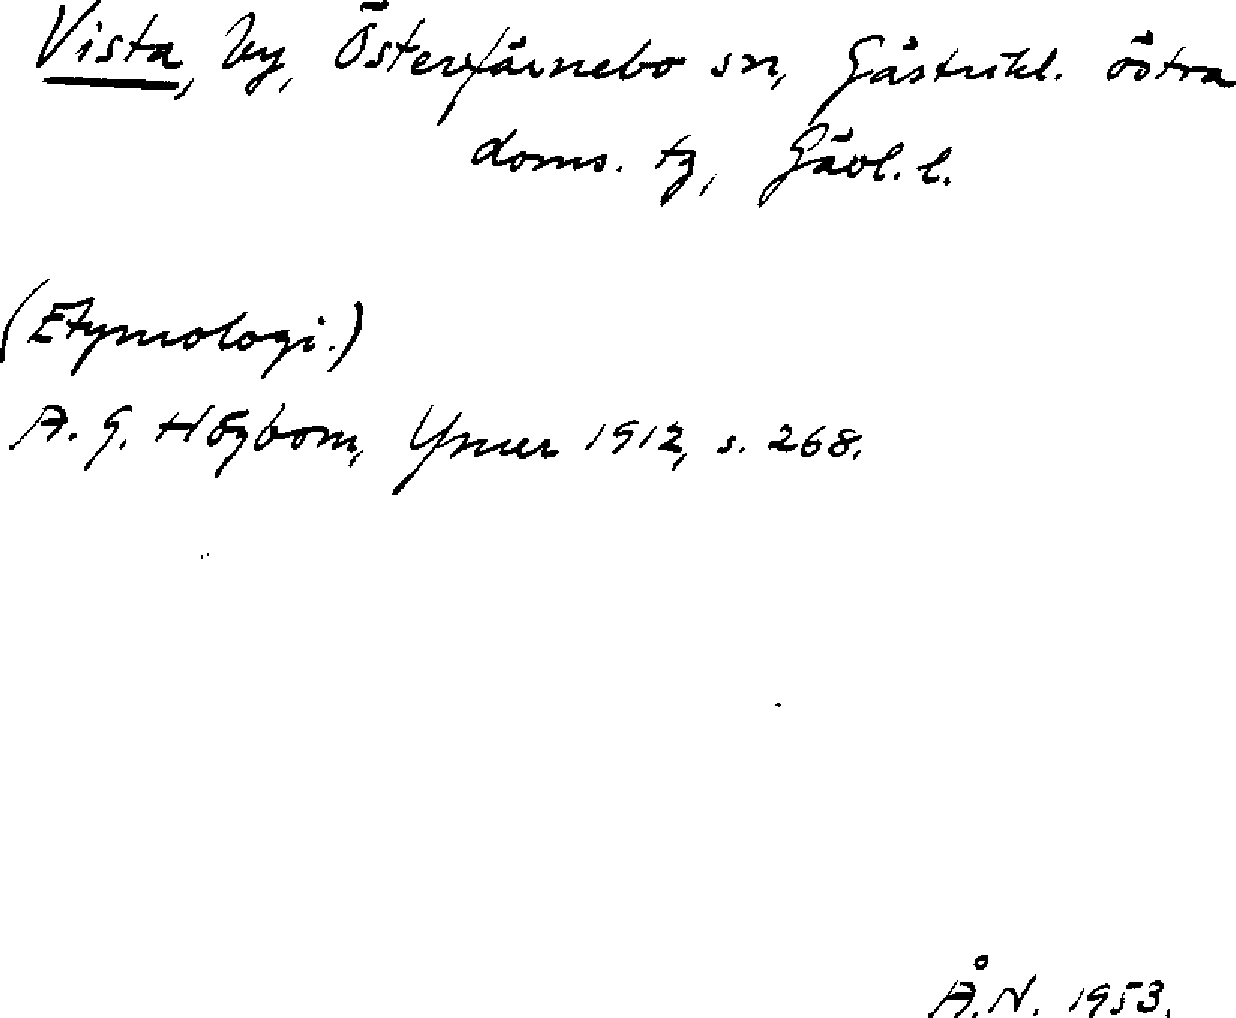 Vista, by, Österfärnebo sn, Gästrikl. östra
doms. tg, Gävl. l.
(Etymologi.)
A. G. Högbom, Ymer 1912, s. 268.
Å.N. 1953.